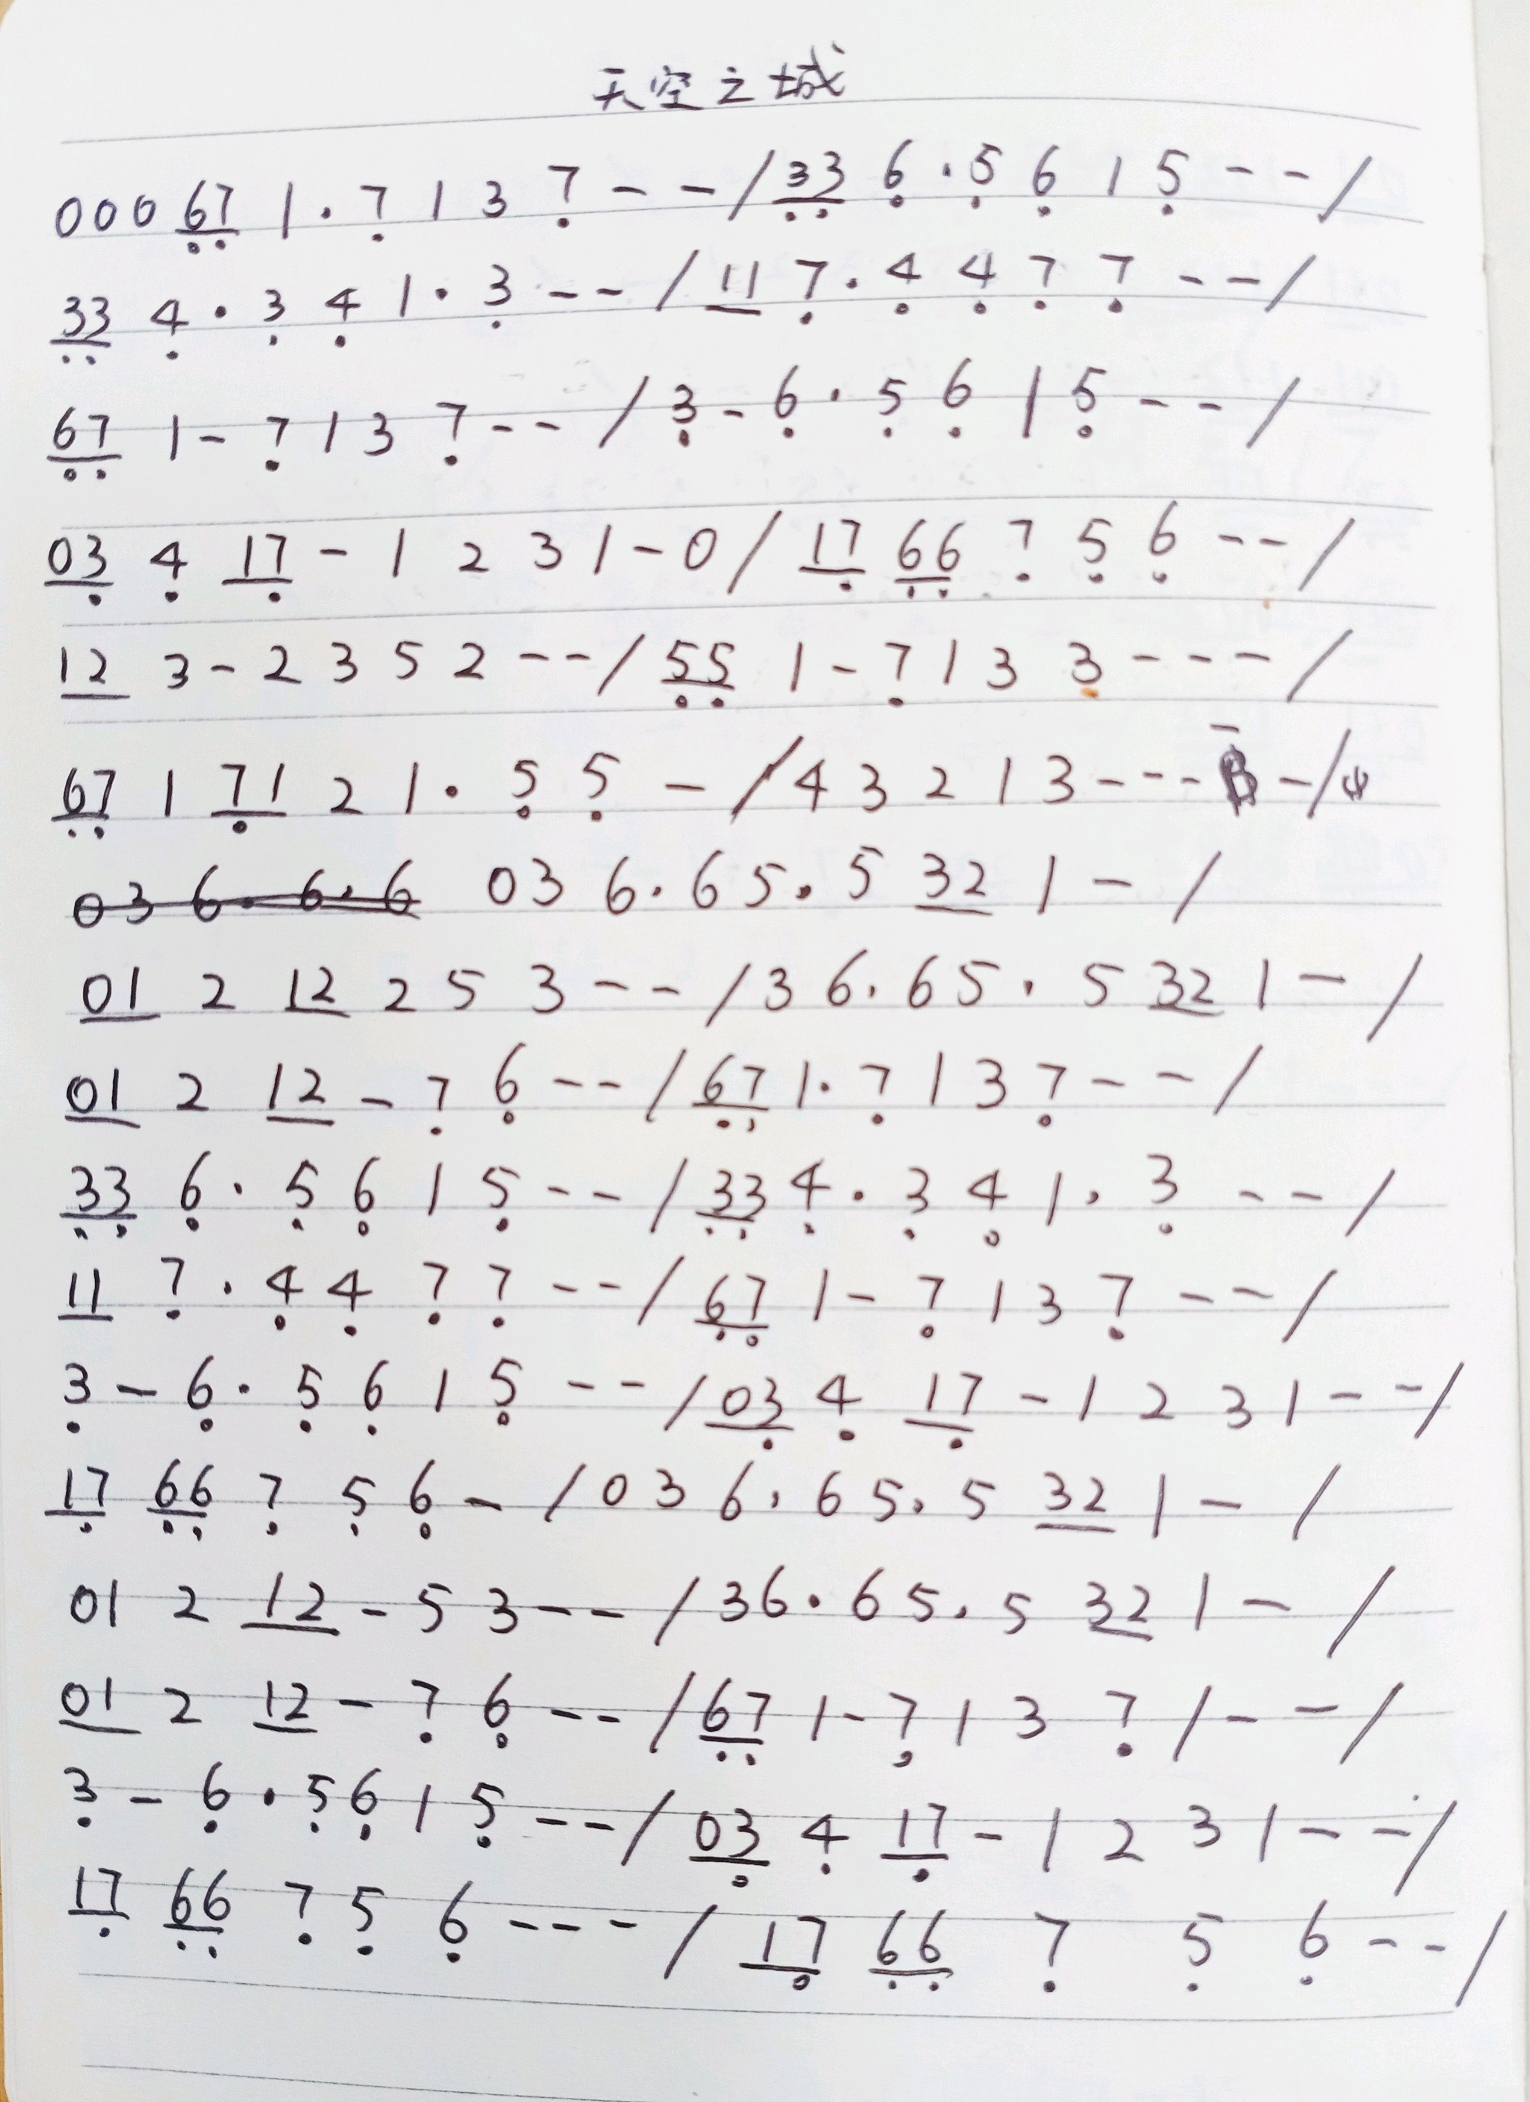 天空之城
000 67 1·7 1 3 7 - - / 33 6·5 6 1 5 - - /
33 4·3 4 1·3 - - / 11 7·4 4 7 7 - - /
67 1 - 7 1 3 7 - - / 3 - 6·5 6 1 5 - - /
03 4 17 - 1 2 3 1 - 0 / 17 66 7 5 6 - - /
12 3 - 2 3 5 2 - - / 55 1 - 7 1 3 3 - - - /
67 1 71 2 1·5 5 - / 4 3 2 1 3 - - - - /
03 6·6·6 03 6·65·5 32 1 - /
01 2 12 2 5 3 - - / 3 6·65·5 32 1 - /
01 2 12 - 7 6 - - / 67 1·7 1 3 7 - - /
33 6·5 6 1 5 - - / 33 4·3 4 1·3 - - /
11 7·4 4 7 7 - - / 67 1 - 7 1 3 7 - - /
3 - 6·5 6 1 5 - - / 03 4 17 - 1 2 3 1 - - /
17 66 7 5 6 - / 0 3 6·65·5 32 1 - /
01 2 12 - 5 3 - - / 36·65·5 32 1 - /
01 2 12 - 7 6 - - / 67 1 - 7 1 3 7 / - - /
3 - 6·5 6 1 5 - - / 03 4 17 - 1 2 3 1 - - /
17 66 7 5 6 - - - / 17 66 7 5 6 - - /